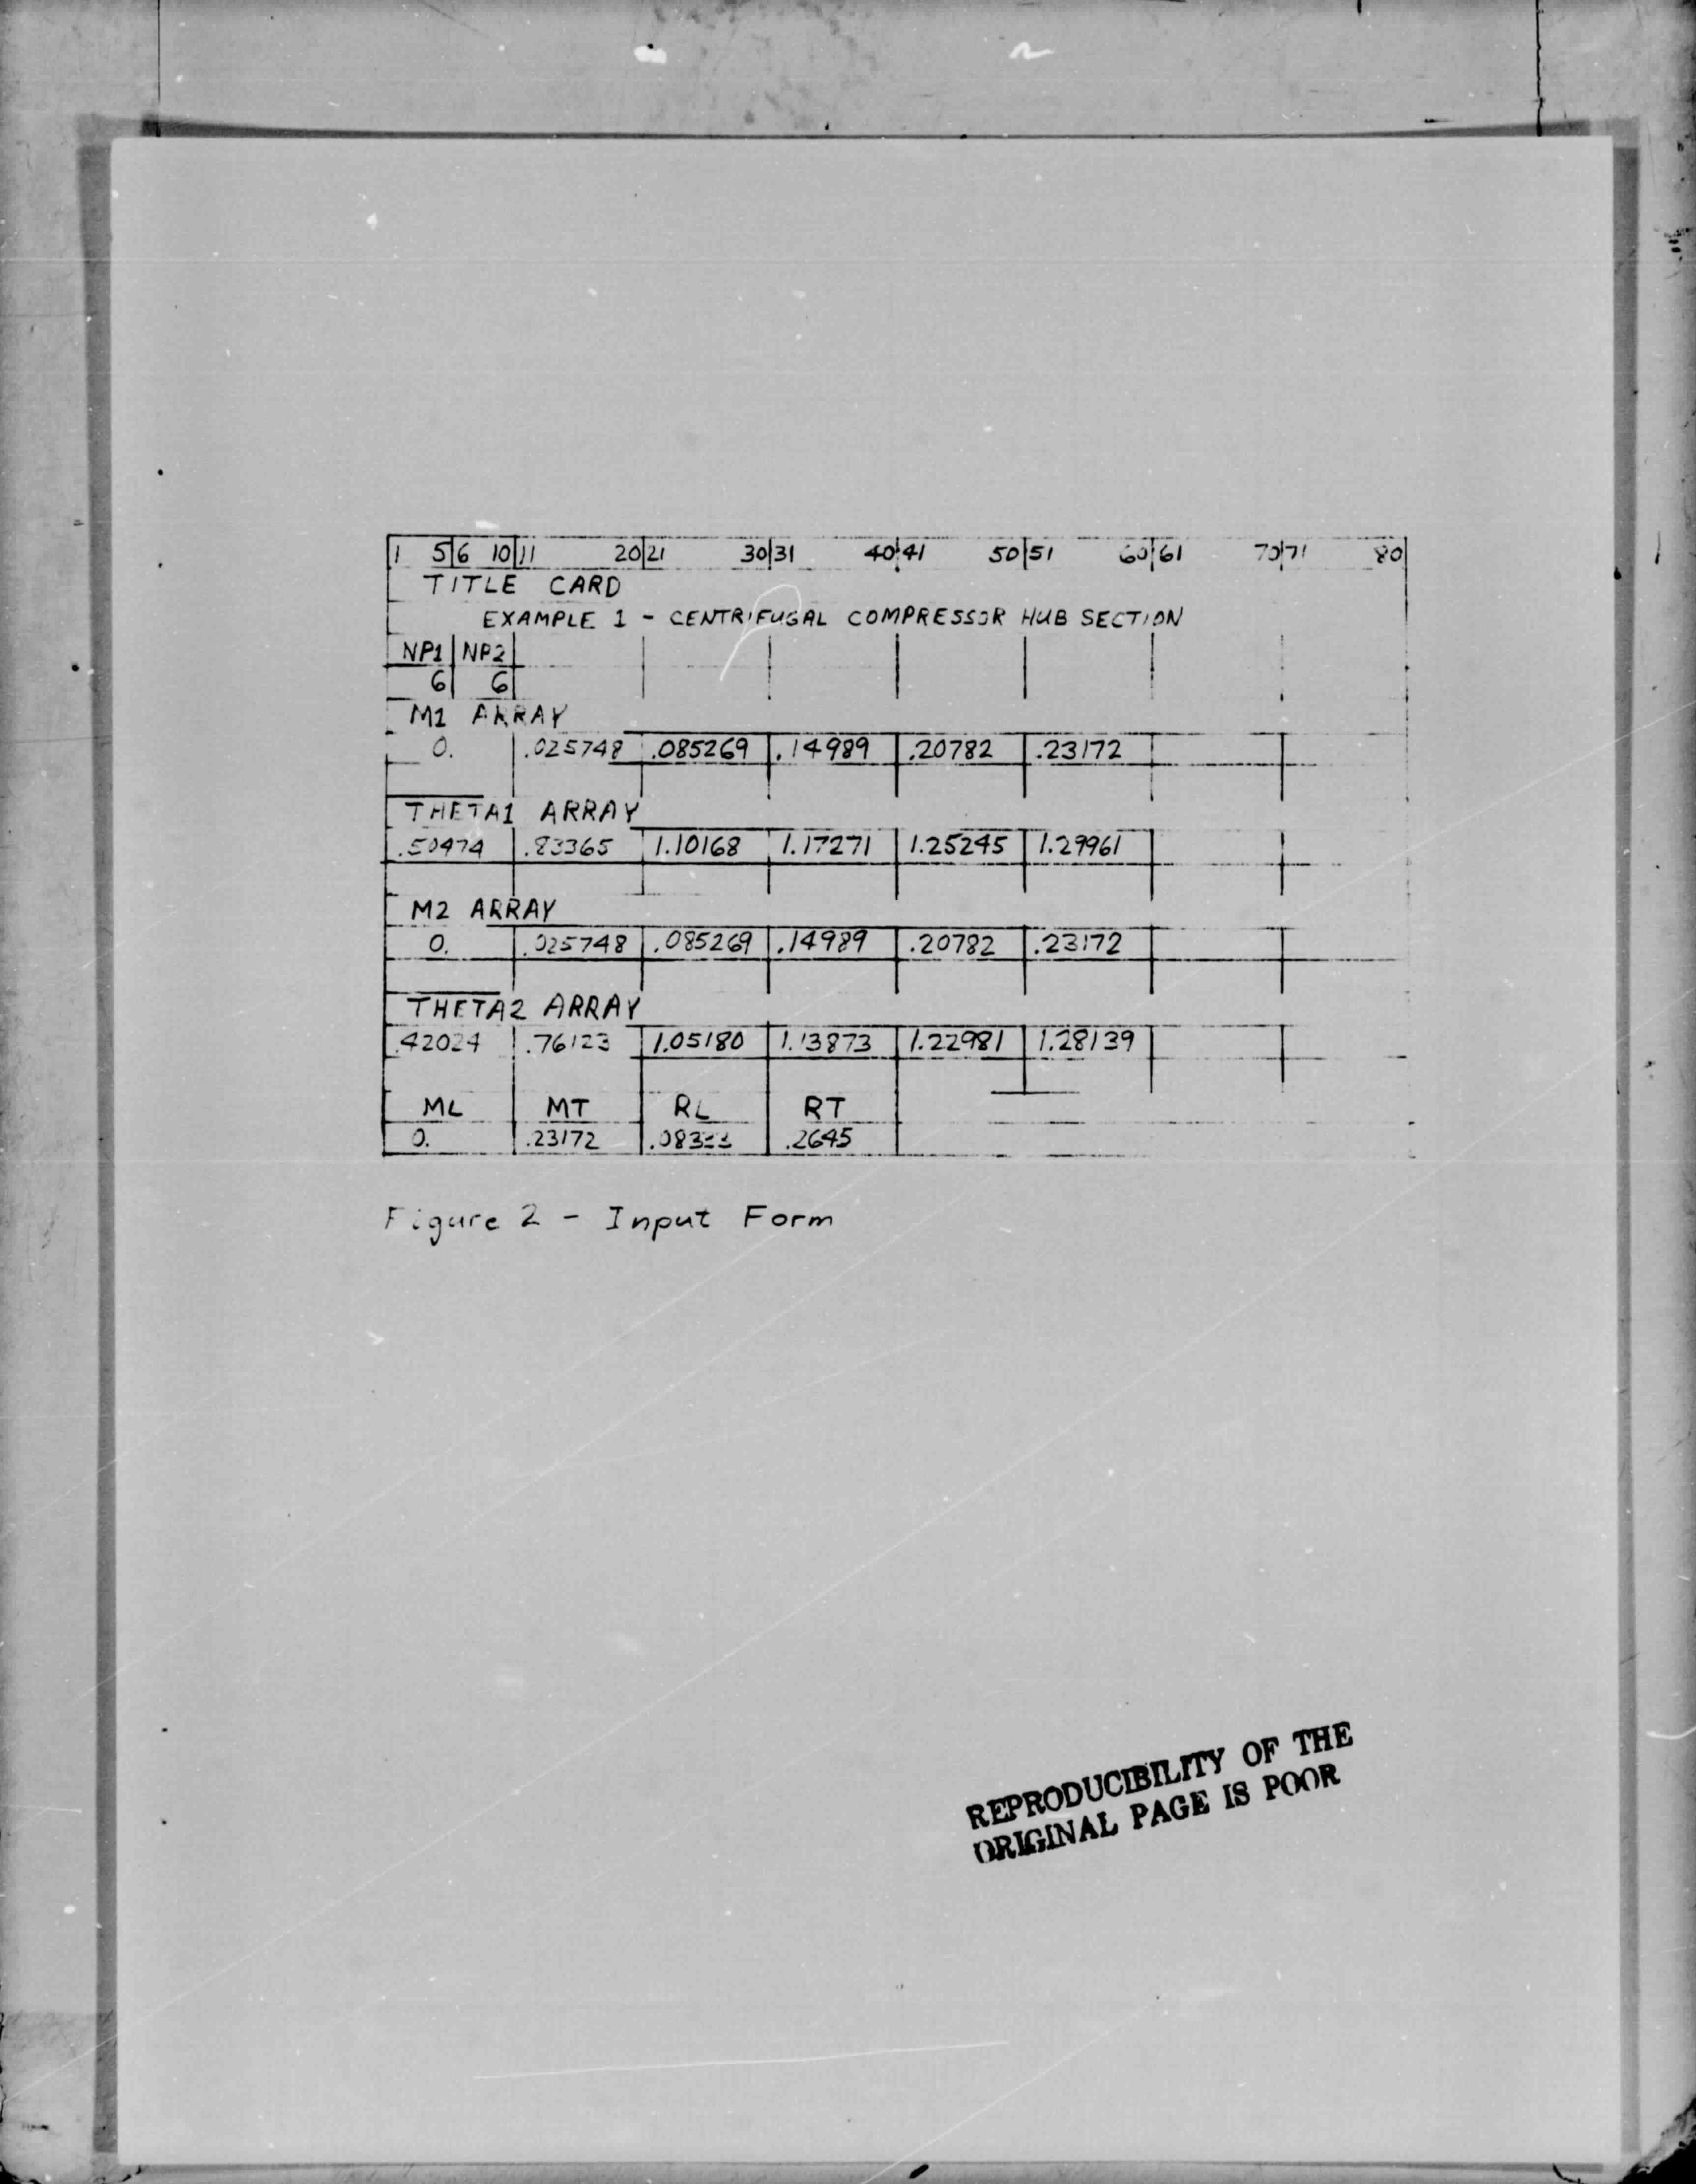 1 5|6 10|11 20|21 30|31 40|41 50|51 60|61 70|71 80
TITLE CARD
EXAMPLE 1 - CENTRIFUGAL COMPRESSOR HUB SECTION
NP1 NP2
6 6
M1 ARRAY
0. .025748 .085269 .14989 .20782 .23172
THETA1 ARRAY
.50474 .83365 1.10168 1.17271 1.25245 1.29961
M2 ARRAY
0. .025748 .085269 .14989 .20782 .23172
THETA2 ARRAY
.42024 .76123 1.05180 1.13873 1.22981 1.28139
ML MT RL RT
0. .23172 .2645
Figure 2 - Input Form
REPRODUCIBILITY OF THE
ORIGINAL PAGE IS POOR